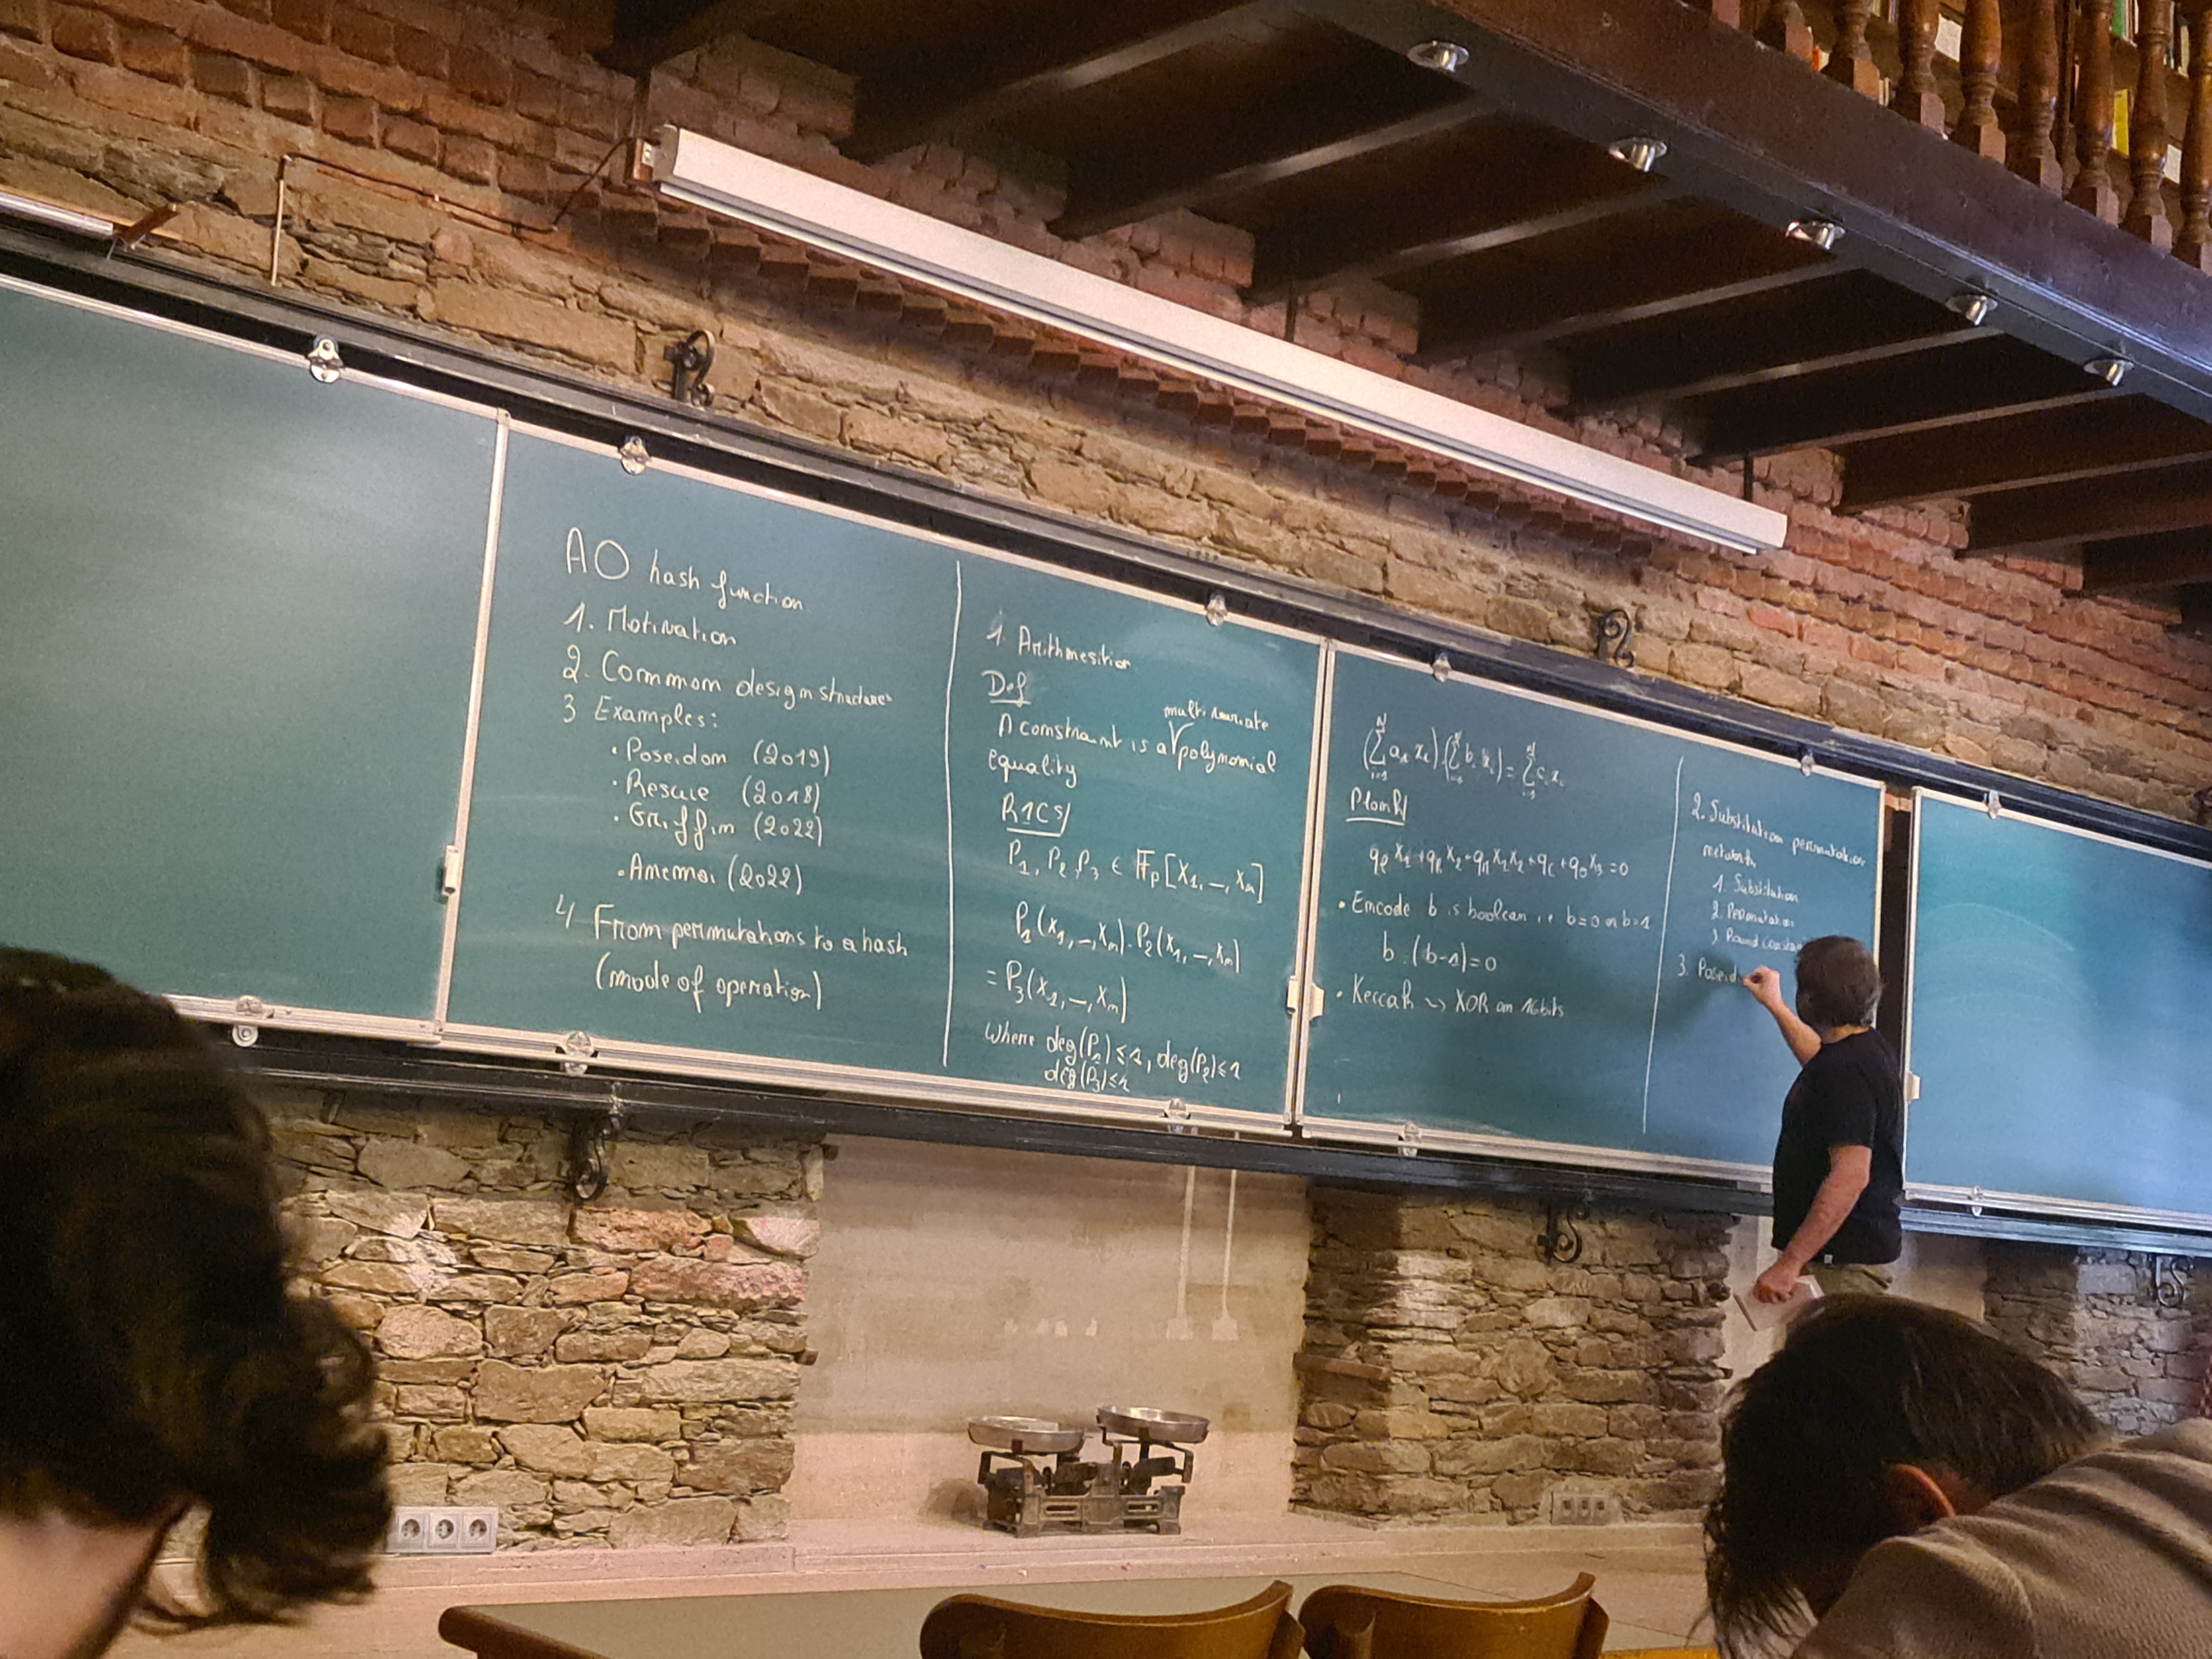 AO hash function
1. Motivation
2. Common design structures
3 Examples:
• Poseidon (2019)
• Rescue (2018)
• Griffin (2022)
• Anemoi (2022)
4 From permutations to a hash
(mode of operation)
1. Arithmesition
Def
multivariate
A constraint is a polynomial
equality
R1CS
P₁, P₂, P₃ ∈ 𝔽p[X₁, –, Xₙ]
P₁(X₁, –, Xₙ) . P₂(X₁, –, Xₙ)
= P₃(X₁, –, Xₙ)
Where deg(P₁) ≤ 1, deg(P₂) ≤ 1
deg(P₃) ≤ 1
(∑ᵢ₌₁ᴺ aᵢ xᵢ) . (∑ᵢ₌₁ᴺ bᵢ xᵢ) = ∑ᵢ₌₁ᴺ cᵢ xᵢ
Plonk
qₗ X₁ + qᵣ X₂ + qₘ X₁X₂ + q_c + q₀ X₃ = 0
• Encode b is boolean i.e b=0 or b=1
b . (b-1) = 0
• Keccak ↝ XOR on 16 bits
2. Substitution permutation
network
1. Substitution
2. Permutation
3 Round consta
3. Poseid